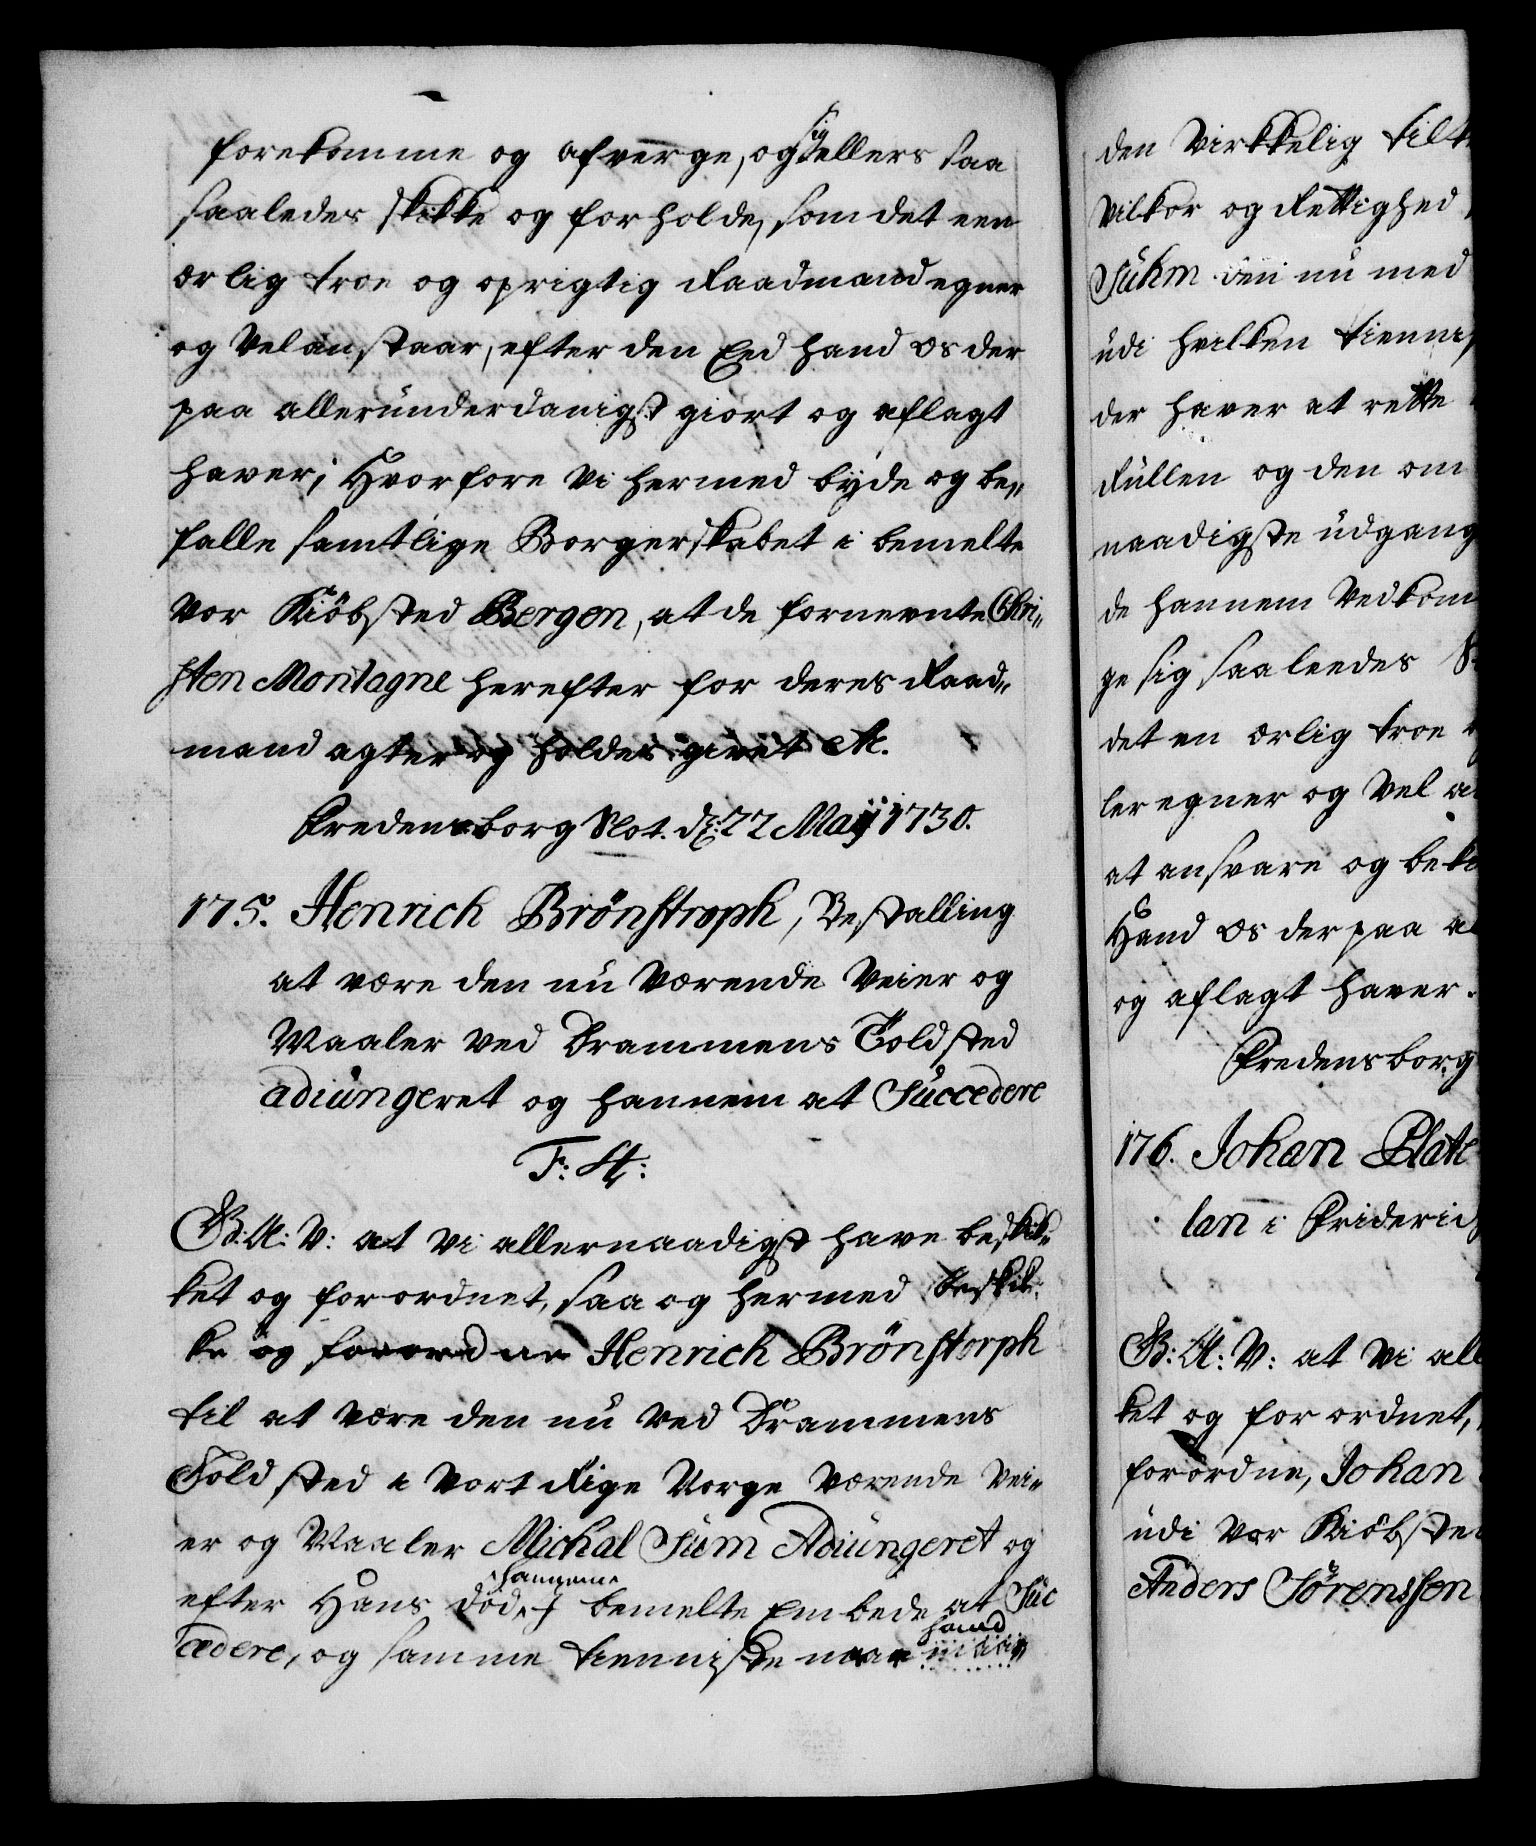 forekomme og afverge, og sig ellers saa
saaledes skikke og forholde, som det een
ærlig troe og oprigtig Raadmand egner
og Vel anstaar, efter den Eed hand os der
paa allerunderdanigst giort og aflagt
haver; Hvorfore Vi hermed byde og be„
falle samtlige Borgerskabet i bemelte
Vor Kiöbsted Bergen, at de fornevnte Chri„
sten Montagne herefter for deres Raad„
mand agter og holder givet etc.
Fredensborg Slot. d: 22 Maij 1730.
175. Henrich Brönstroph, Bestalling
at være den nu Værende Veier og
Maaler ved Drammens Toldsted
adiungeret og hannem at Succedere
F: 4:
G: A: V: at Vi allernaadigst have beskik„
ket og forordnet, saa og hermed beskik„
ke og forordne Henrich Brönstorph
til at være den nu ved Drammens
Toldsted i Vort Rige Norge Værende Vei„
er og Maaler Michal Sum Adiungeret og
efter Hans død, hannem i bemelte Embede at Suc
cedere, og samme tienniste naar hand
den Virkkelig
Vilkor og Rettighed
Suhm den nu med
udi hvilken
der haver at rette
Rullen og den om
naadigste udgang
de hannem Vedkom
ge sig saaleedes
det en ærlig troe
ler egner og Vel
at ansvare og
Hand os der paa
og aflagt haver.
Fredensborg
176. Johan Plate
lan i Frideric
G: A: V: at Vi all
ket og forordnet,
forordne, Johan
udi Vor Kiöbste
Anders Sörensson